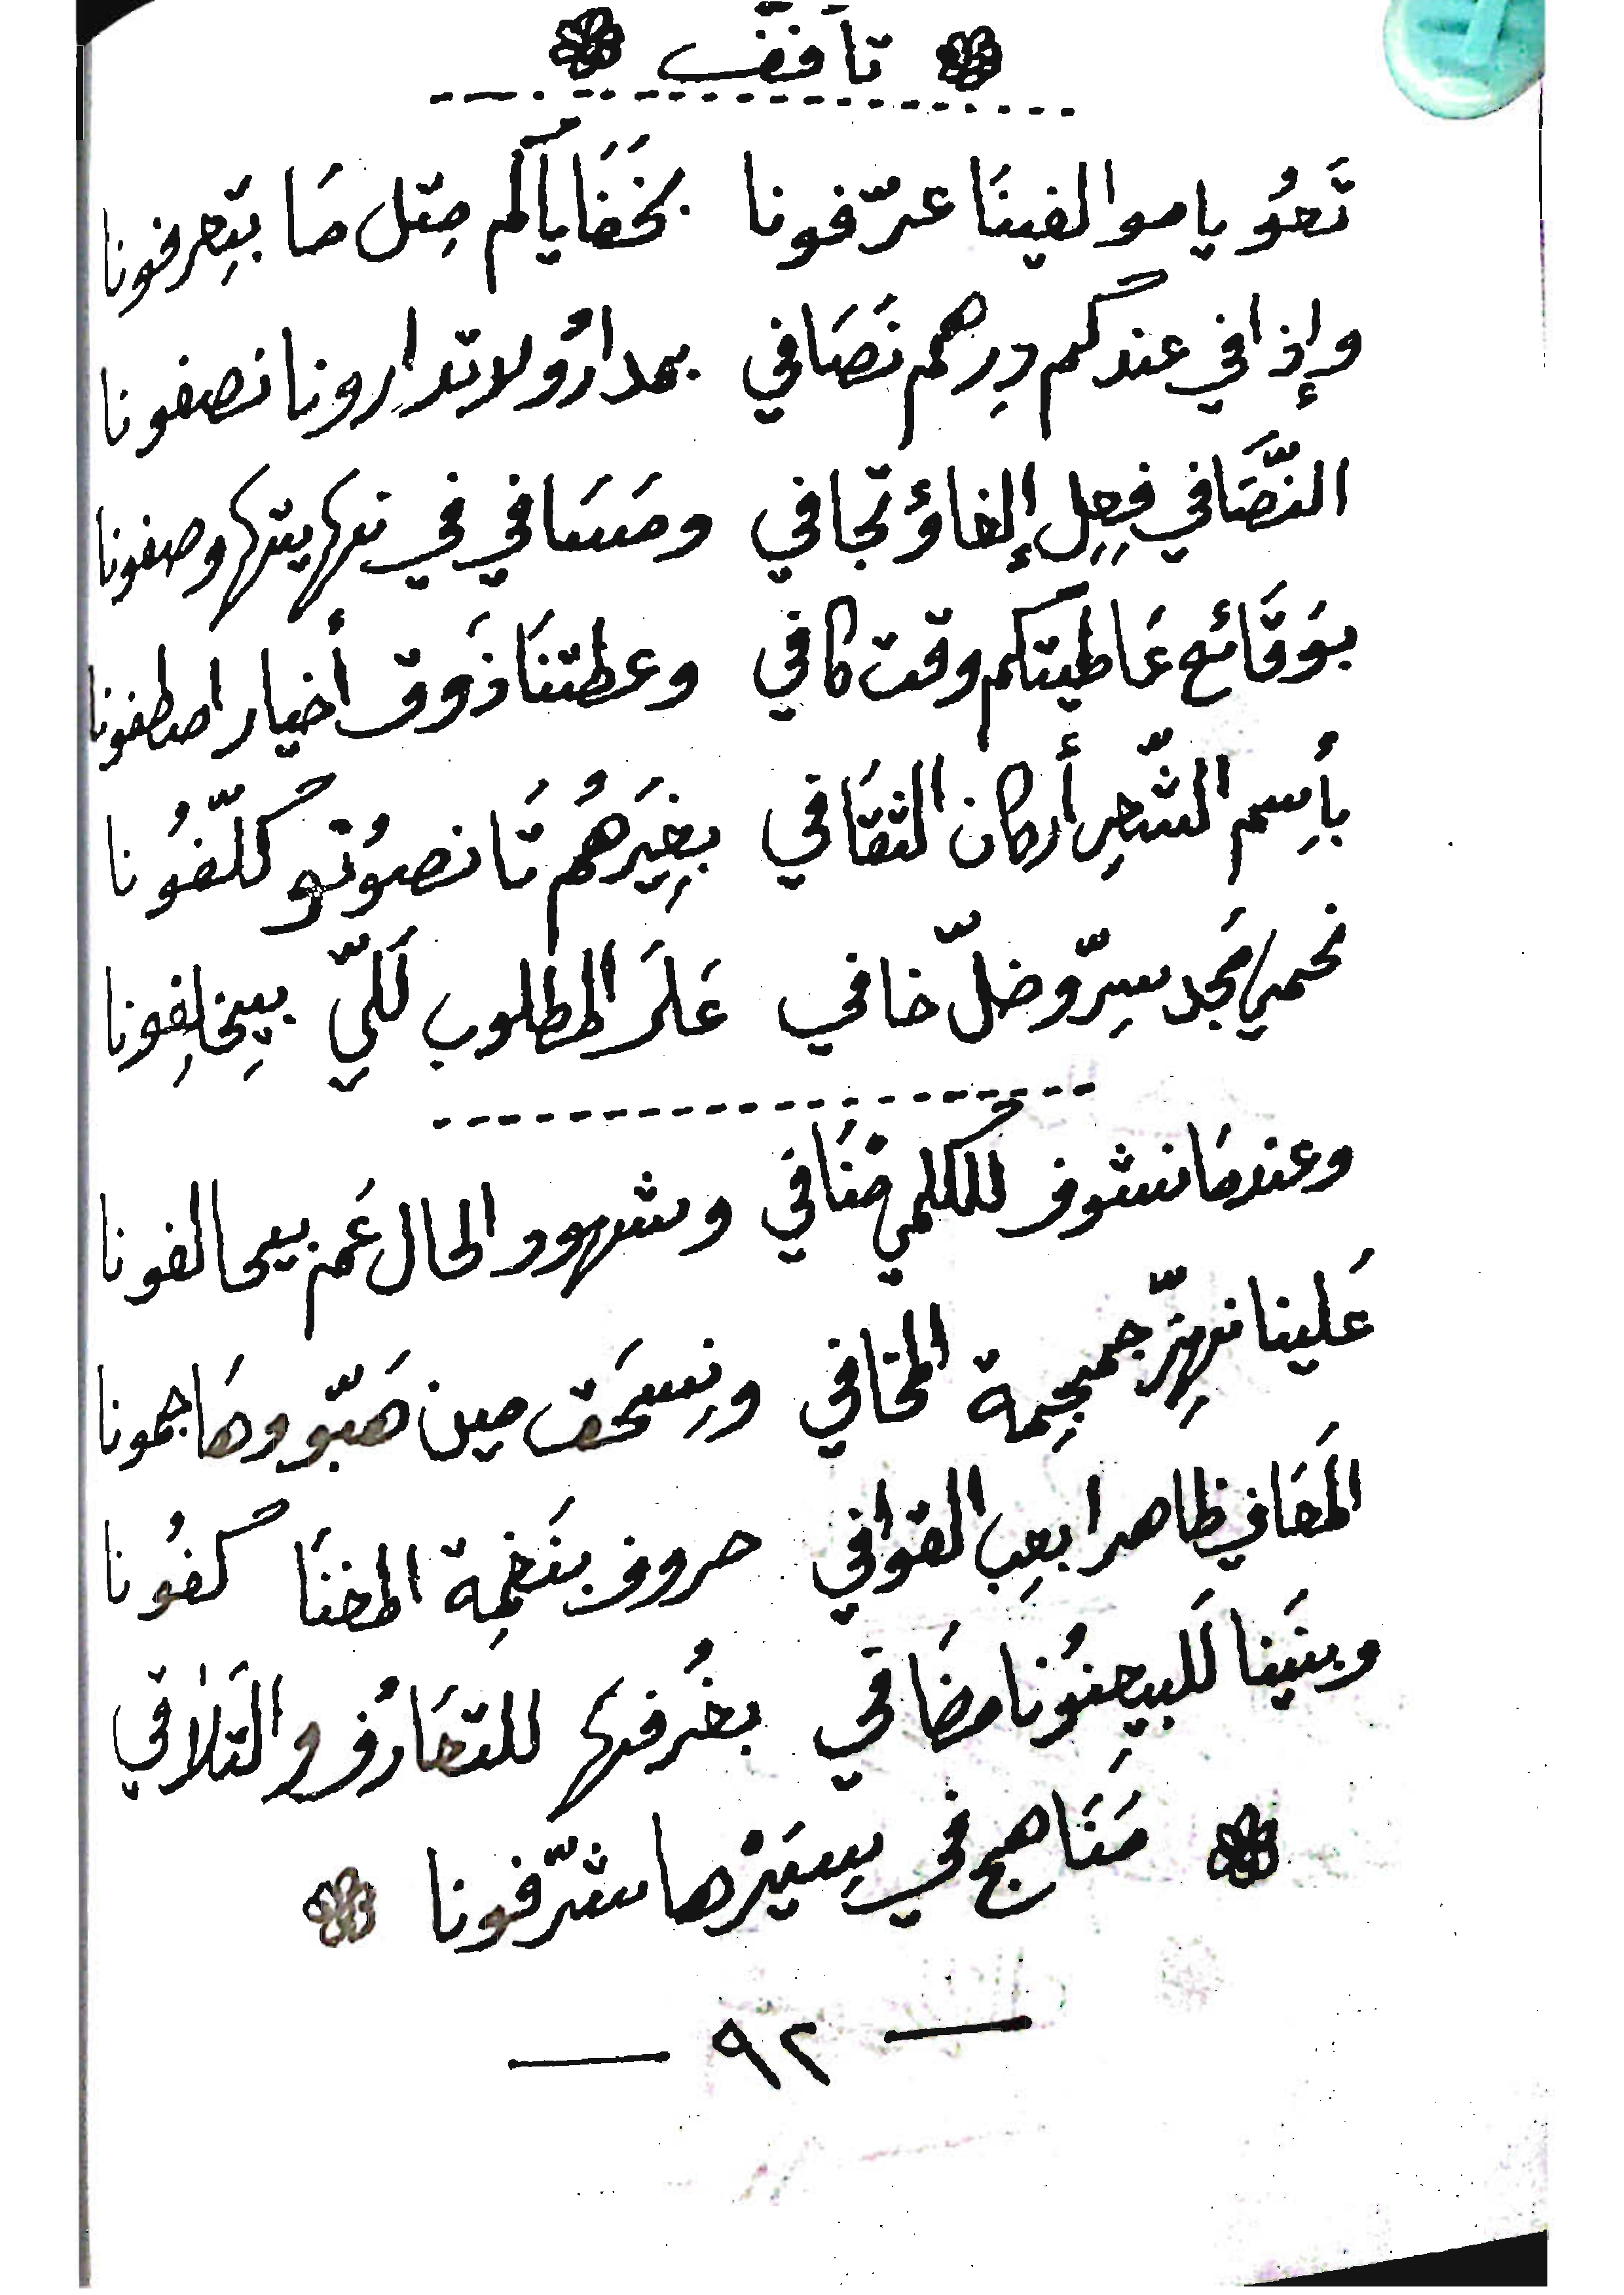 تأفف
تَعوُ يا موالفينَا عرّفونا بخَفَاياكُم مِتل مَا بتِعرفونا
وإذا في عندكُم دِرهم نَصَافي بمدارُو لا تدارونا نصفونا
التَّصَافي فِعِل إلغاؤ تجافي ومَسَافي في نهايتها وصفونا
بوَقَائع عَاطيتكُم وقت كافي وعطتنَا ذَوق أخيار اصطفونا
بأِسم الشّعِر أركان الثقَافي بغِيَرهُم تَا نصوُتو كلّفُونا
نحمي مَجد سِرّو ضلّ خافي عَلَى المطلوب لَلّي بيِخالِفونا
وعندمَا نشوف للكلمي مْنَافي وشهود الحال عَم بيحالفونا
عَلينا نهِزّ جمجِمة المخافي ونِسحَق مين هَبّو وهَاجمونا
المَعَاني ظاهرا بعِب القوافي حروف بنَغمِة المغنَا كفُونا
وبنَينا لَلبيعنوُنا مضَافِي بغُرفها للتعَارُف والتَلاقي
مَنَاهج في سِيَرْها شرّفونا
— ٩٢ —